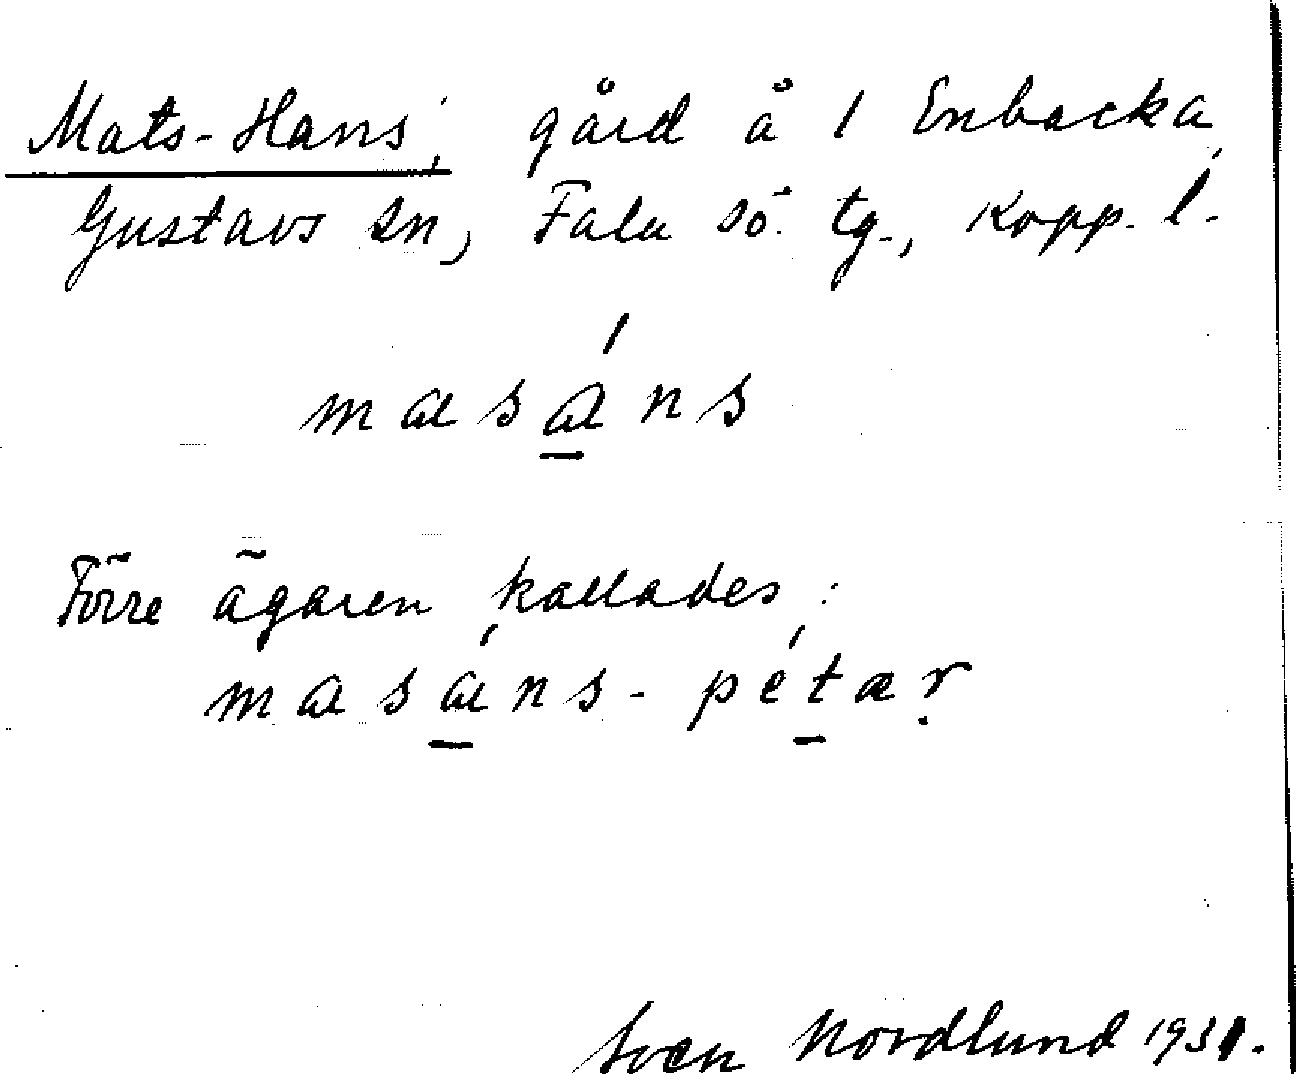 Mats-Hans, gård å 1 Enbacka,
Gustavs sn, Falu sö. tg., Kopp. l.
masáns
Förre ägaren kallades:
masáns-pétær
Sven Nordlund 1931.